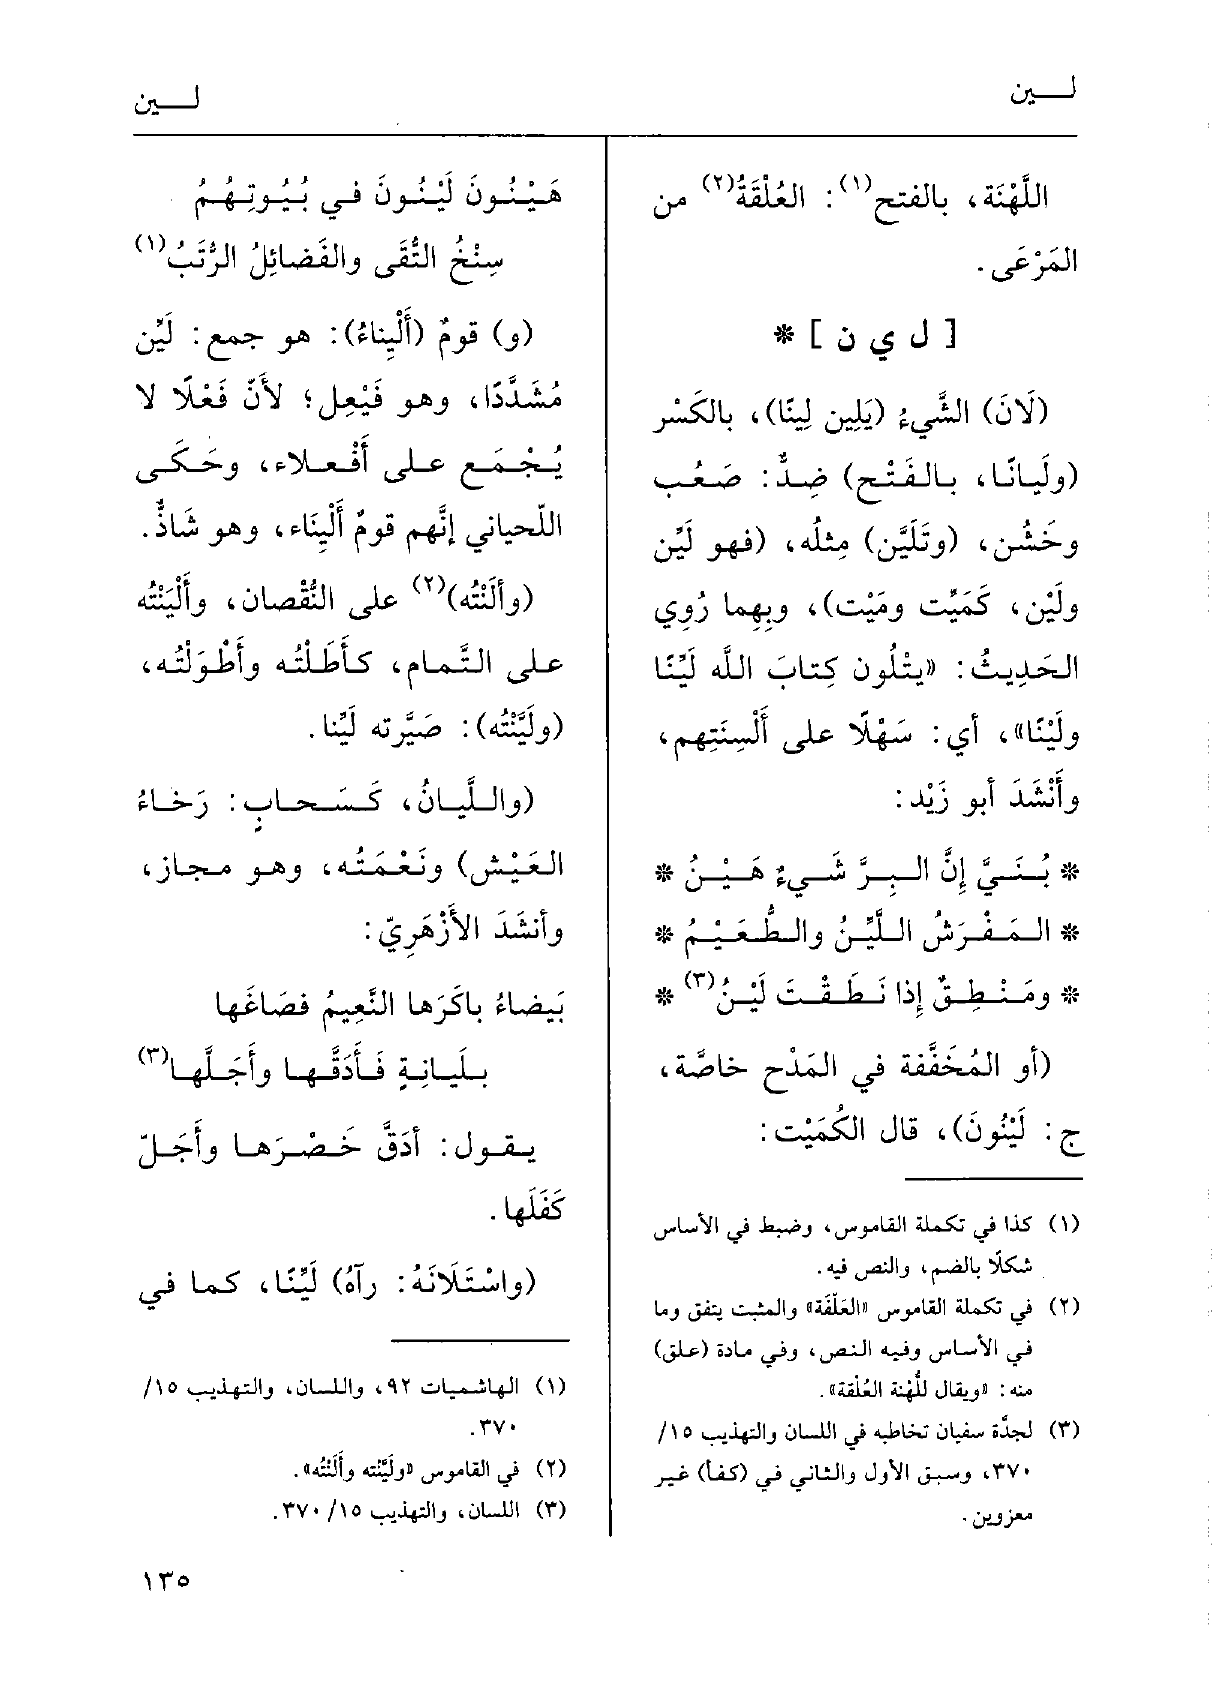 لـــين
لـــين
اللَّهْنَة، بالفتح(١): العُلْقَةُ(٢) من
المَرْعَى.
[ ل ي ن ] *
(لَانَ) الشَّيءُ (يَلِين لِينًا)، بالكَسْر
(ولَيانًا، بالفَتْح) ضِدُّ: صَعُب
وخَشُن، (وتَلَيَّن) مِثلُه، (فهو لَيِّن
ولَيْن، كَمَيِّت ومَيْت)، وبِهِما رُوِي
الحَدِيثُ: «يتْلُون كِتابَ الله لَيِّنًا
ولَيْنًا»، أي: سَهْلًا على أَلْسِنَتِهم،
وأَنْشَدَ أبو زَيْد:
* بُنَيَّ إِنَّ البِرَّ شَيءٌ هَيْنُ *
* المَفْرَشُ اللَّيِّنُ والطُّعَيْمُ *
* ومَنْطِقٌ إِذا نَطَقْتَ لَيْنُ(٣) *
(أو المُخَفَّفة في المَدْح خاصَّة،
ج: لَيْنُونَ)، قال الكُمَيْت:
(١) كذا في تكملة القاموس، وضبط في الأساس
شكلًا بالضم، والنص فيه.
(٢) في تكملة القاموس «العَلْفَة» والمثبت يتفق وما
في الأساس وفيه النص، وفي مادة (علق)
منه: «ويقال للُّهنة العُلْقة».
(٣) لجدَّة سفيان تخاطبه في اللسان والتهذيب ١٥/
٣٧٠، وسبق الأول والثاني في (كفأ) غير
معزوين.
هَيْنُونَ لَيْنُونَ في بُيُوتِهُمُ
سِنْخُ التُّقَى والفَضائِلُ الرُّتَبُ(١)
(و) قومٌ (أَلْيِناءُ): هو جمع: لَيِّن
مُشَدَّدًا، وهو فَيْعِل؛ لأَنّ فَعْلًا لا
يُجْمَع على أَفْعلاء، وحَكَى
اللّحياني إنَّهم قومٌ أَلْيِنَاء، وهو شَاذٌّ.
(وألَنْتُه)(٢) على النُّقْصان، وأَلْيَنْتُه
على التَّمام، كأَطَلْتُه وأَطْوَلْتُه،
(ولَيَّنْتُه): صَيَّرته لَيِّنا.
(واللَّيانُ، كَسَحابٍ: رَخاءُ
العَيْش) ونَعْمَتُه، وهو مجاز،
وأنشَدَ الأَزْهَرِيّ:
بَيضاءُ باكَرَها النَّعِيمُ فصَاغَها
بلَيانِةٍ فَأَدَقَّها وأَجَلَّها(٣)
يقول: أدَقَّ خَصْرَها وأَجَلّ
كَفَلَها.
(واسْتَلَانَهُ: رآهُ) لَيِّنًا، كما في
(١) الهاشميات ٩٢، واللسان، والتهذيب ١٥/
٣٧٠.
(٢) في القاموس «ولَيَّنْته وأَلَنْتُه».
(٣) اللسان، والتهذيب ١٥/ ٣٧٠.
١٣٥